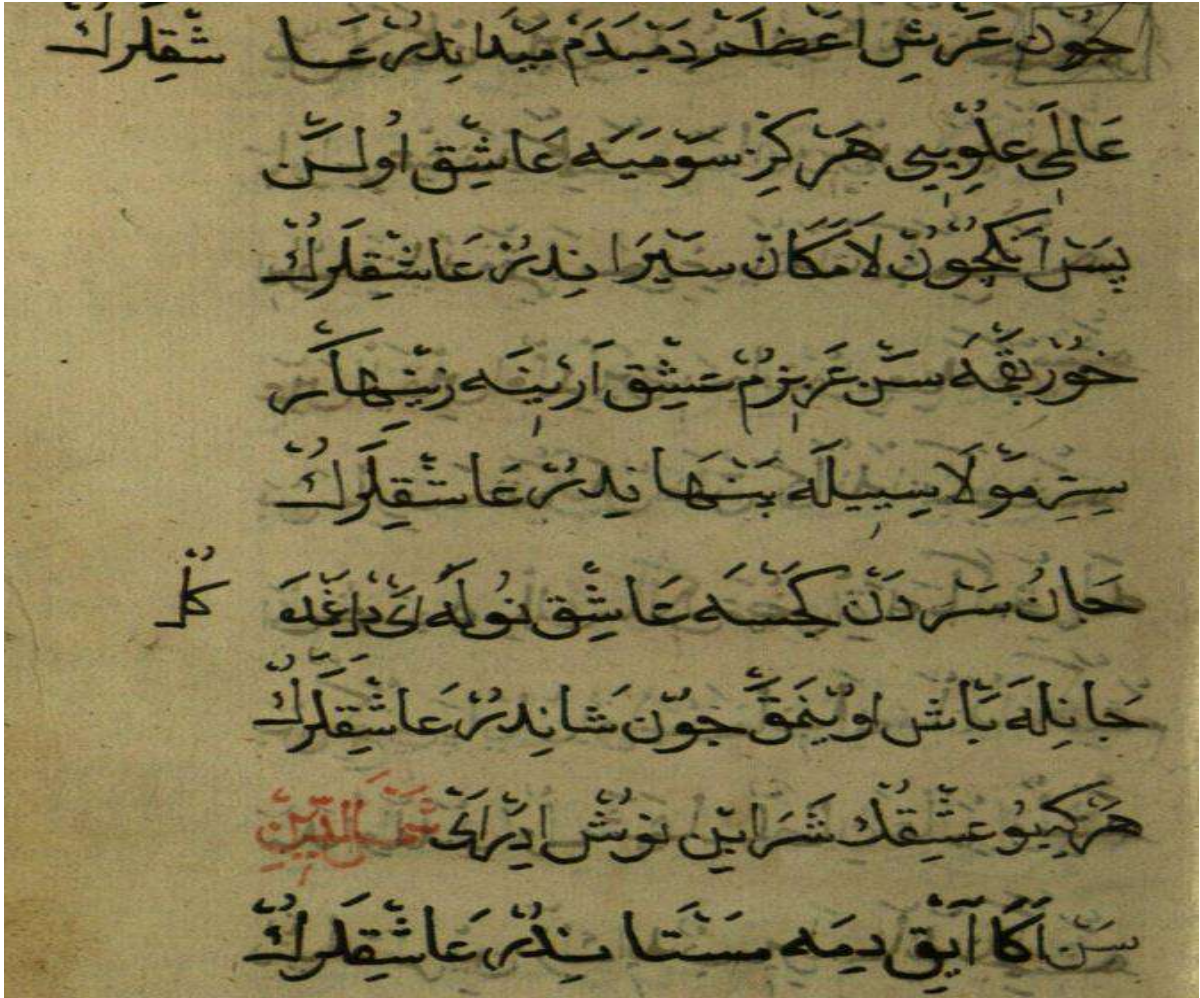 چون عرش اعظم دمبدم میداندر عاشقلرك
عالم علویی هرکز سومیه عاشق اولن
پس انكچون لامكان سیراندر عاشقلرك
خور بقمه سن عزیزم عشق ارینه زینهار
سر مولاییله پنهاندر عاشقلرك
جان سردن كچسه عاشق نوله ای
جانله باش اوینمق چون شاندر عاشقلرك
هركیبو عشقك شرابین نوش ادر ای شمس الدین
سن اكا آیق دیمه مستاندر عاشقلرك